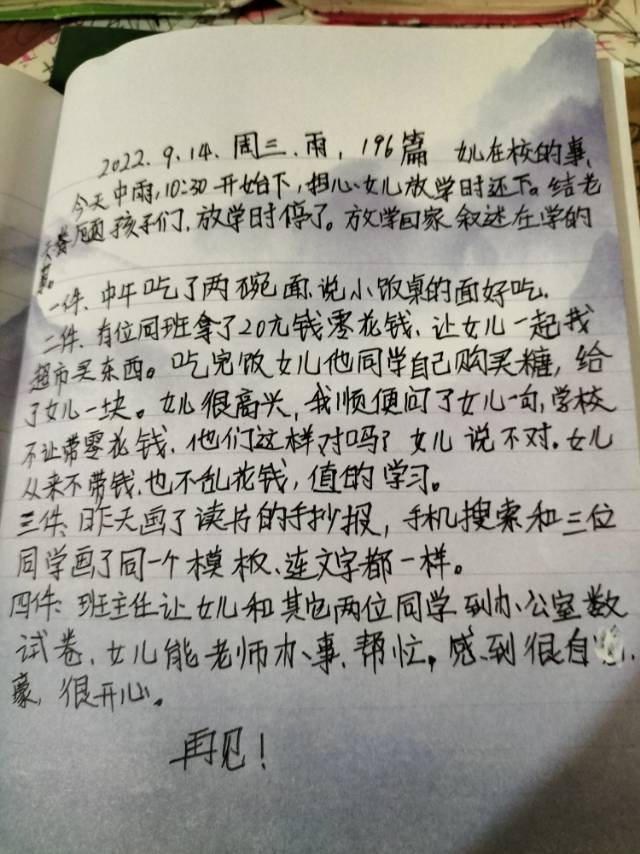 2022.9.14.周三.雨,196篇 女儿在校的事.
今天中雨,10:30开始下,担心女儿放学时还下。结老
天照顾孩子们.放学时停了。放学回家叙述在学的
事。
一件、中午吃了两碗面.说小饭桌的面好吃.
二件、有位同班拿了20元钱零花钱、让女儿一起找
超市买东西。吃完饭女儿他同学自己购买糖,给
了女儿一块。女儿很高兴,我顺便问了女儿一句,学校
不让带零花钱.他们这样对吗?女儿说不对.女儿
从来不带钱.也不乱花钱,值的学习。
三件、昨天画了读书的手抄报,手机搜索和三位
同学画了同一个模板、连文字都一样。
四件:班主任让女儿和其它两位同学到办公室数
试卷、女儿能老师办事.帮忙,感到很自
豪,很开心。
再见!